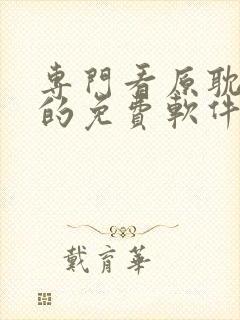 專門看原耽
的免費軟件
戴育華